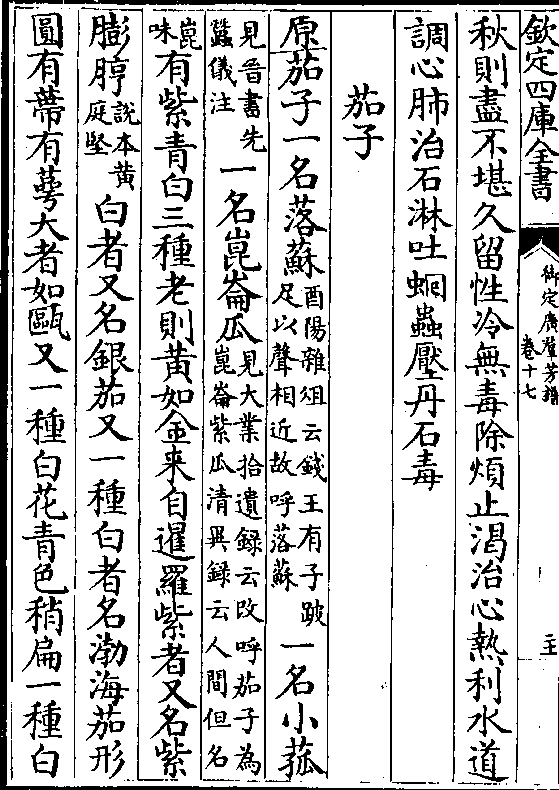 欽定四庫全書
御定廣羣芳譜
卷十七
秋則盡不堪久留性冷無毒除煩止渴治心熱利水道
調心肺治石淋吐蛔蟲壓丹石毒
茄子
原茄子一名落蘇酉陽雜俎云錢王有子跛
足以聲相近故呼落蘇一名小菰
見晉書先
蠶儀注一名崑崙瓜見大業拾遺録云改呼茄子為
崑崙紫瓜清異録云人間但名
崑
味有紫青白三種老則黄如金来自暹羅紫者又名紫
膨脝說本黄
庭堅白者又名銀茄又一種白者名渤海茄形
圓有蔕有萼大者如甌又一種白花青色稍扁一種白